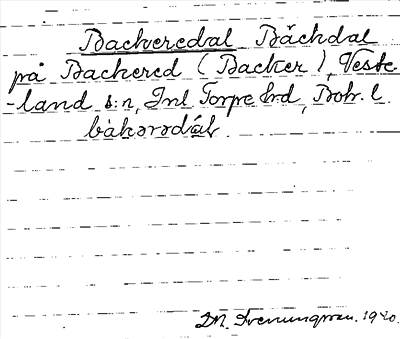 Backeredal Bäckdal
på Backered (Backer), Veste-
-land s:n, Inl Torpe hrd, Boh. l.
bàkərədál.
1920.